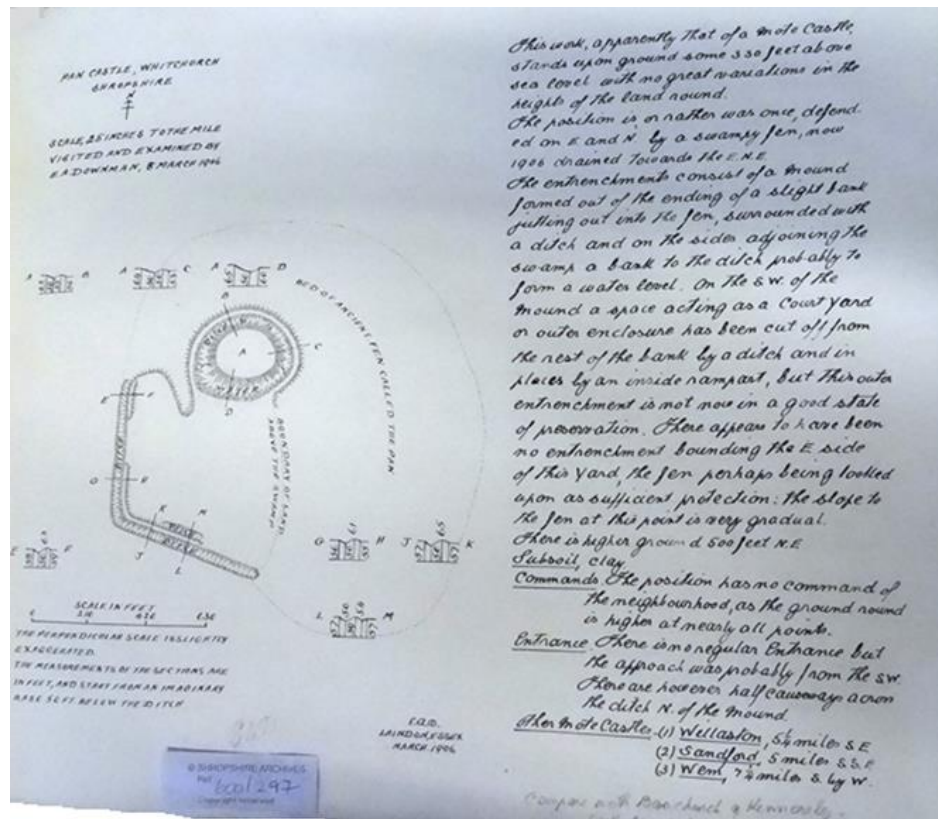 PAN CASTLE, WHITCHURCH
SHROPSHIRE
N
SCALE, 25 INCHES TO THE MILE
VISITED AND EXAMINED BY
E.A. DOWNMAN, 8 MARCH 1906
A B
A C
A D
BED OF ANCIENT FEN CALLED THE PAN
B
DITCH
A
C
DITCH
D
E F
DITCH
BOUNDARY OF LAND
ABOVE THE SWAMP
G H
K M
DITCH
J L
E F
G H
J K
L M
SCALE IN FEET
0 210 420 630
THE PERPENDICULAR SCALE IS SLIGHTLY
EXAGGERATED.
THE MEASUREMENTS OF THE SECTIONS ARE
IN FEET, AND START FROM AN IMAGINARY
BASE 50 FT. BELOW THE DITCH
E.A.D.
LAINDON, ESSEX
MARCH, 1906
© SHROPSHIRE ARCHIVES
Ref 6001/297
Copyright reserved
This work, apparently that of a Mote Castle,
stands upon ground some 330 feet above
sea level with no great variations in the
heights of the land round.
The position is or rather was once, defend-
ed on E and N. by a swampy fen, now
1906 drained towards the E.N.E.
The entrenchments consist of a mound
formed out of the ending of a slight bank
jutting out into the fen, surrounded with
a ditch and on the sides adjoining the
swamp a bank to the ditch probably to
form a water level. On the S.W. of the
Mound a space acting as a Court Yard
or outer enclosure has been cut off from
the rest of the bank by a ditch and in
places by an inside rampart, but this outer
entrenchment is not now in a good state
of preservation. There appears to have been
no entrenchment bounding the E. side
of this Yard, the fen perhaps being looked
upon as sufficient protection: the slope to
the fen at this point is very gradual.
There is higher ground 500 feet N.E.
Subsoil, clay
Commands. The position has no command of
the neighbourhood, as the ground round
is higher at nearly all points.
Entrance. There is no regular Entrance but
the approach was probably from the S.W.
There are however half causeways across
the ditch N. of the Mound.
Other Mote Castles (1) Wellaston, 5¼ miles S.E
(2) Sandford, 5 miles S.S.E
(3) Wem, 7¾ miles S. by W.
Compare with